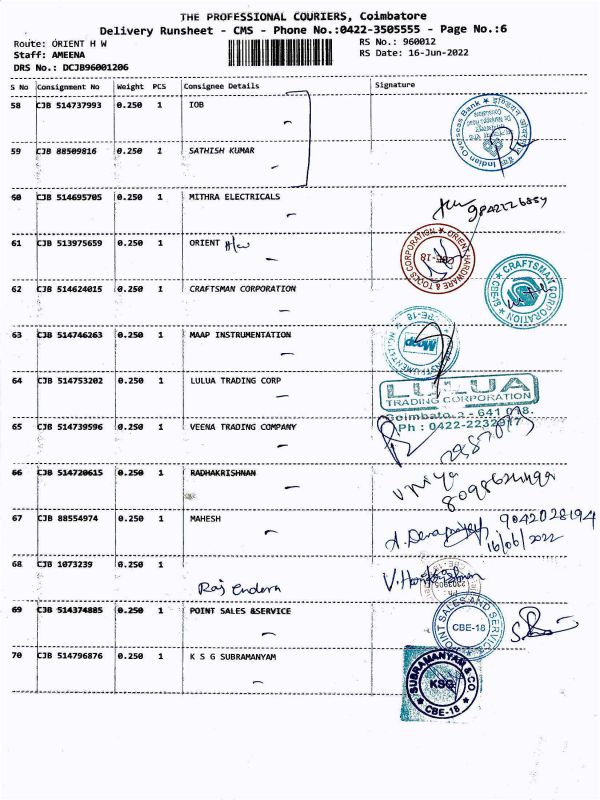 THE PROFESSIONAL COURIERS, Coimbatore
Delivery Runsheet - CMS - Phone No.:0422-3505555 - Page No.:6
Route: ORIENT H W
RS No.: 960012
Staff: AMEENA
RS Date: 16-Jun-2022
DRS No.: DCJB96001206
S No Consignment No Weight PCS Consignee Details Signature
58 CJB 514737993 0.250 1 IOB
Indian Overseas Bank
59 CJB 88509816 0.250 1 SATHISH KUMAR
60 CJB 514695705 0.250 1 MITHRA ELECTRICALS
61 CJB 513975659 0.250 1 ORIENT H/w
ORIENT HARDWARE & TOOLS CORPORATION
CBE-18
62 CJB 514624015 0.250 1 CRAFTSMAN CORPORATION
CRAFTSMAN CORPORATION
63 CJB 514746263 0.250 1 MAAP INSTRUMENTATION
64 CJB 514753202 0.250 1 LULUA TRADING CORP
LULUA
TRADING CORPORATION
Coimbatore - 641 018.
Ph : 0422-2232917
65 CJB 514739596 0.250 1 VEENA TRADING COMPANY
66 CJB 514720615 0.250 1 RADHAKRISHNAN
67 CJB 88554974 0.250 1 MAHESH
9042028194
16/06/2022
68 CJB 1073239 0.250 1
Rajendera
69 CJB 514374885 0.250 1 POINT SALES &SERVICE
POINT SALES AND SERVICE
CBE-18
70 CJB 514796876 0.250 1 K S G SUBRAMANYAM
SUBRAMANYAM & CO.
KSG
CBE-18